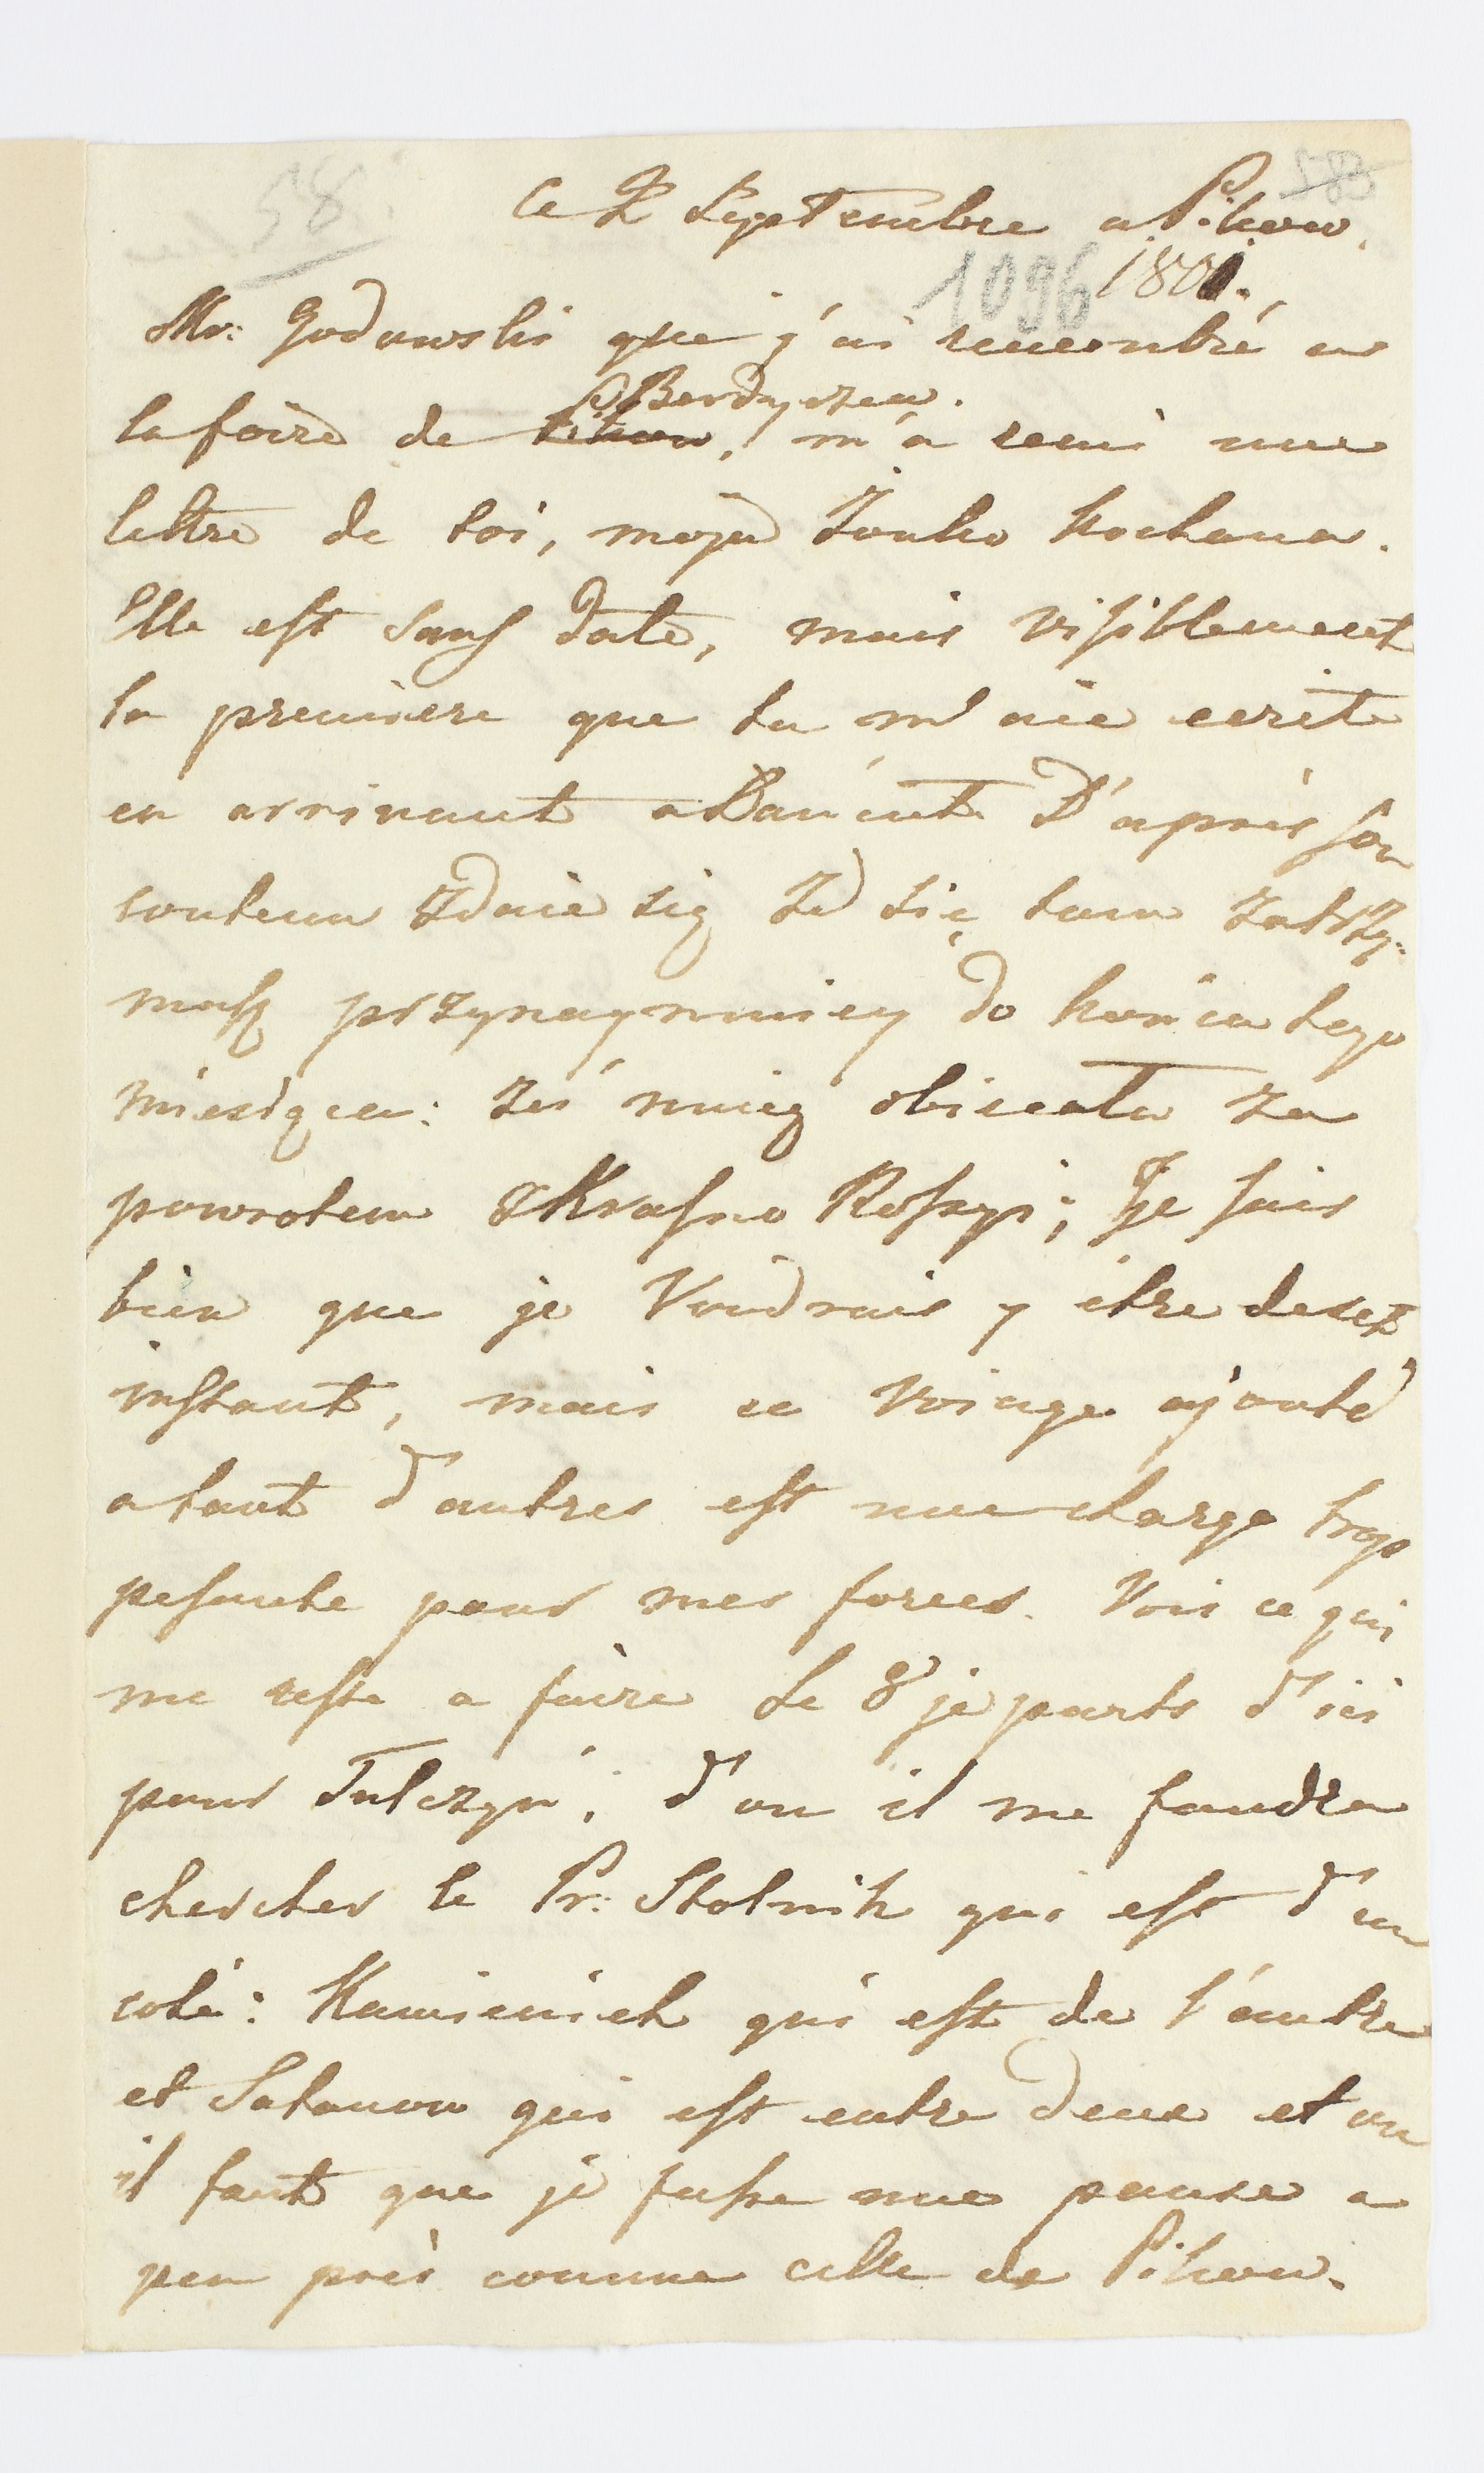 58.
588
Ce 2 Septembre a Pikow.
1096 1801.
Mr: Godowski que j'ai rencontré a
la foire de Pikow, Berdyczew. m'a remi une
lettre de toi, moja Żonko kochana.
Elle est sans date, mais visiblement
la premiere que tu m'aie ecrite
en arrivant a Łańcut. D'après son
contenu zdaie się że się tam zatrzy-
masz przynaymniey do końca tego
miesiąca: żeś mnię obiecała za
powrotem z Krasno Rossyi; Je sais
bien que je Voudrais y être de cet
instant, mais ce Voiage ajouté
a tant d'autres est une charge trop
pesante pour mes forces. Vois ce qui
me reste a faire Le 8 je parts d'ici
pour Tulczyn; d'ou il me faudra
chercher le Pr: Stolnik qui est d'un
coté: Kamieniek qui est de l'autre
et Satanow qui est entre deux et ou
il faut que je fasse une pause a
peu près comme celle de Pikow.